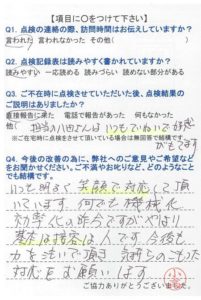 【項目に○をつけて下さい】
Q1. 点検の連絡の際、訪問時間はお伝えしていますか？
言われた 言われなかった その他( )
Q2. 点検記録表は読みやすく書かれていますか？
読みやすい 一応読める 読みづらい 読めない部分がある
Q3. ご不在時に点検させていただいた後、点検結果の
ご説明はありましたか？
直接報告に来た 電話で報告があった 何もなかった
他( 担当の いつもていねいで好感
がもてます
※ご在宅時に点検をさせて頂いている場合は無回答で結構です。
Q4. 今後の改善の為に、弊社へのご意見やご希望など
をお聞かせください。ご不満やお叱りなど、どのようなこと
でも結構です。
いつも明るく、笑顔で対応して頂
いています。何でも機械化
効率化の昨今ですがやはり
基本は接客は人です。今後も
力を注いで頂き、気持ちのこもった
対応をお願いします
ご協力ありがとうございました。